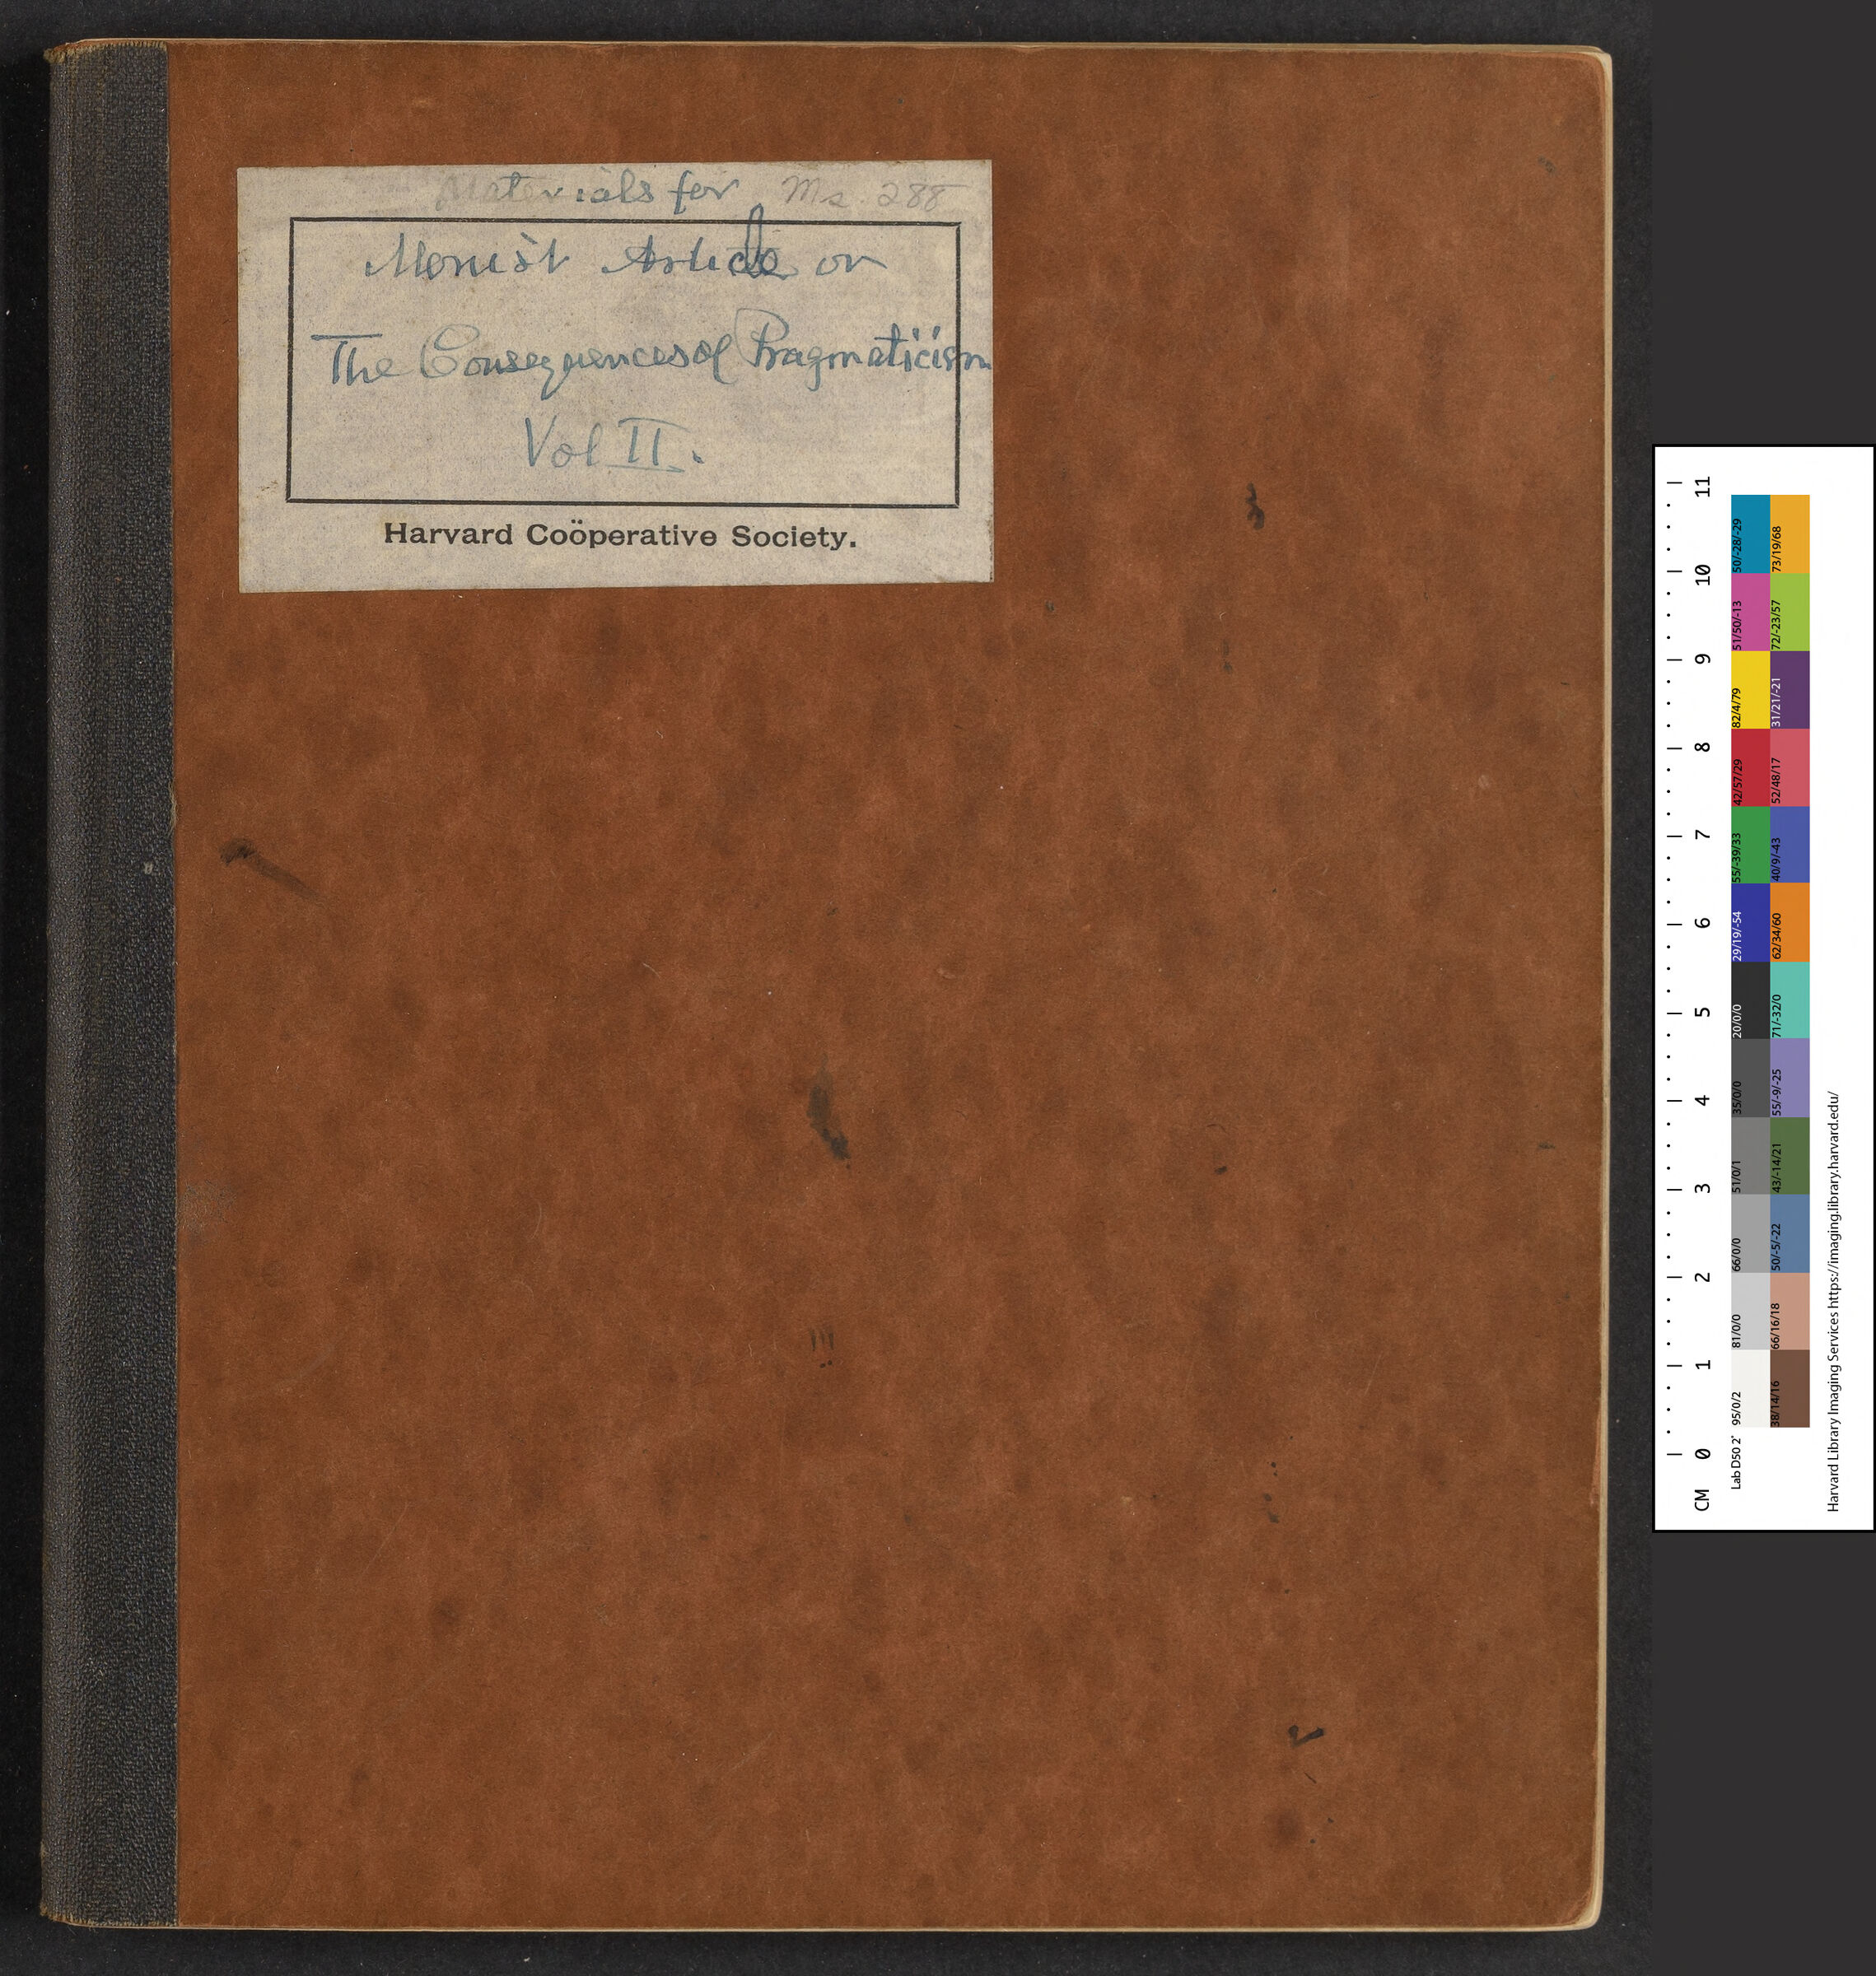 Materials for Ms. 288
Monist Article on
The Consequences of Pragmaticism
Vol II.
Harvard Coöperative Society.
CM 0 1 2 3 4 5 6 7 8 9 10 11
Lab D50 2° 95/0/2 81/0/0 66/0/0 51/0/1 35/0/0 20/0/0 29/19/-54 55/-39/33 42/57/29 82/4/79 51/50/-13 50/-28/-29
38/14/16 66/16/18 50/-5/-22 43/-14/21 55/-9/-25 71/-32/0 62/34/60 40/9/-43 52/48/17 31/21/-21 72/-23/57 73/19/68
Harvard Library Imaging Services https://imaging.library.harvard.edu/